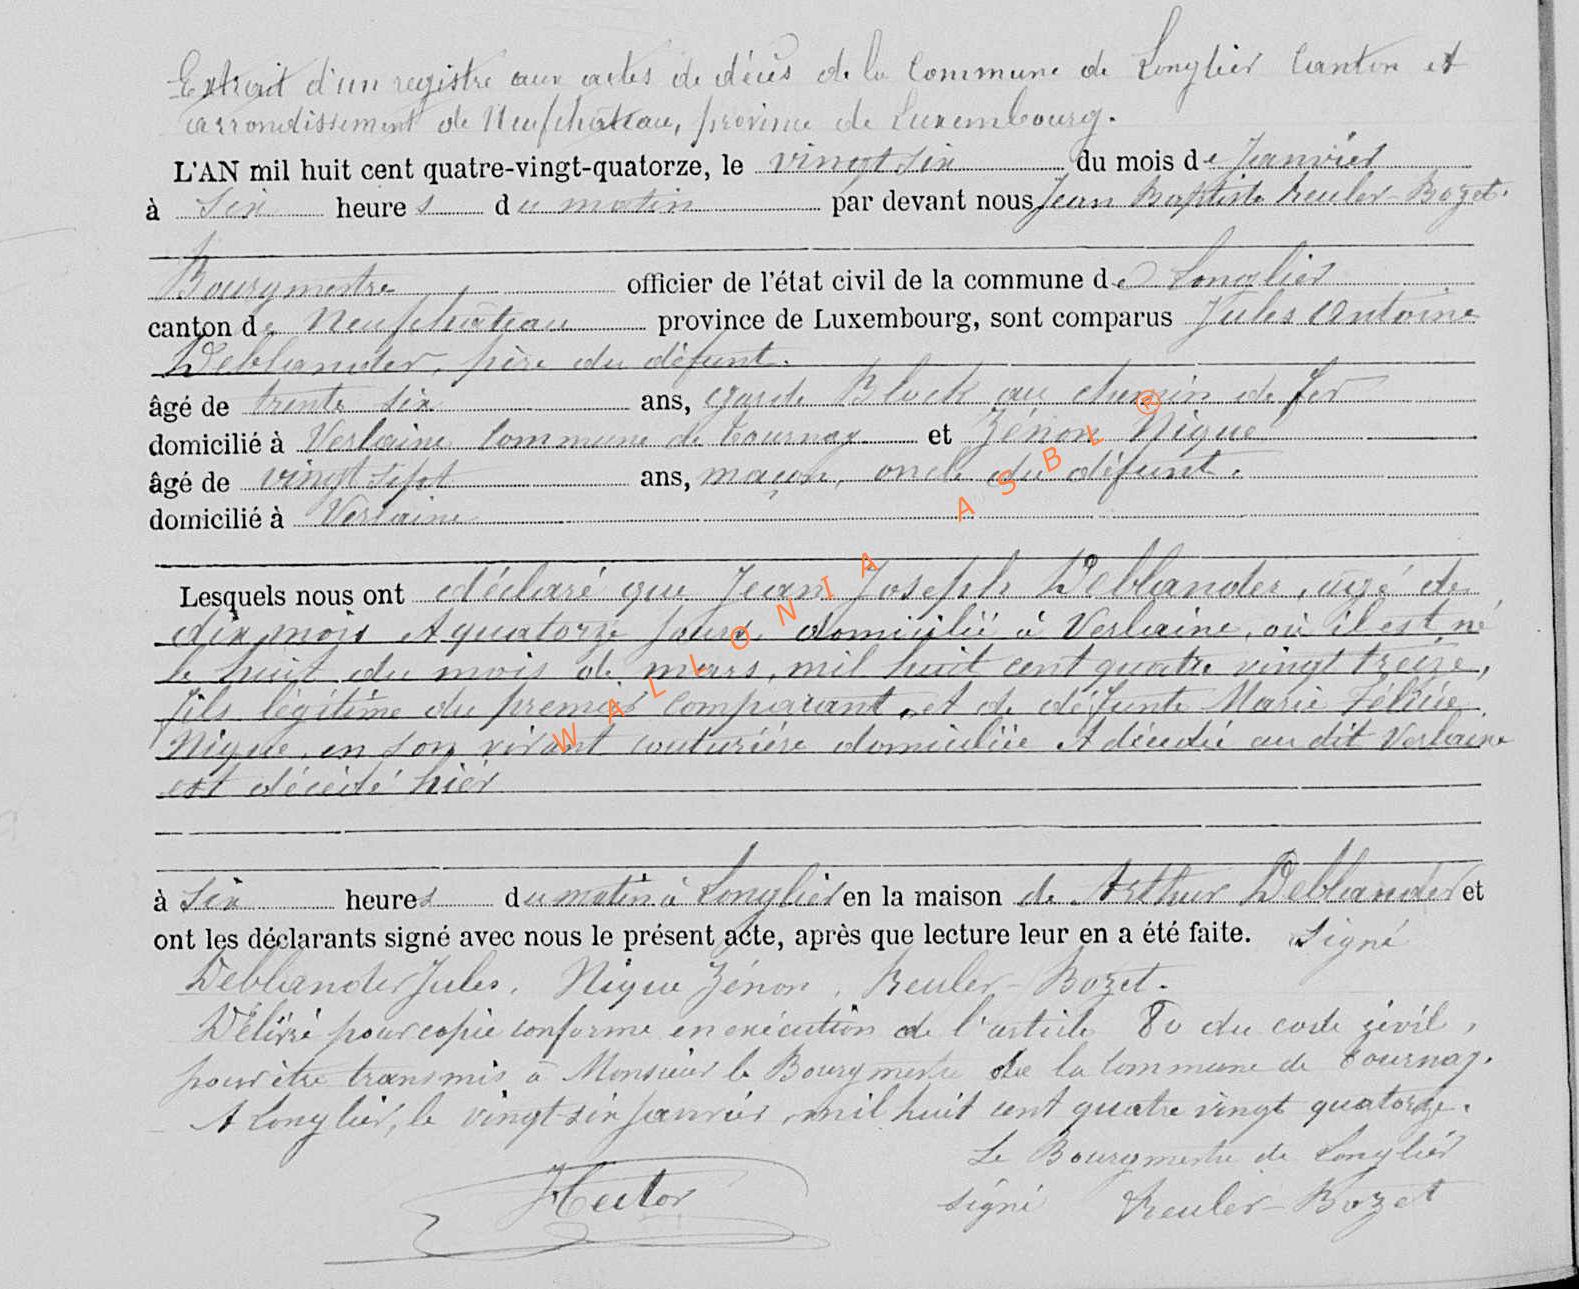 Extrait d'un registre aux actes de décès de la Commune de Longlier Canton et
arrondissement de Neufchateau, province de Luxembourg.
L'AN mil huit cent quatre-vingt-quatorze, le vingt six du mois de Janvier
à six heures du matin par devant nous Jean Baptiste Reuler-Bozet.
Bourgmestre officier de l'état civil de la commune de Longlier
canton de Neufchâteau province de Luxembourg, sont comparus Jules Antoine
Deblander, père du défunt.
âgé de trente six ans, garde Block au chemin de fer
domicilié à Verlaine Commune de Tournay et Zénon Nique
âgé de vingt sept ans, maçon, oncle du défunt.
domicilié à Verlaine
Lesquels nous ont déclaré que Jean Joseph Deblander, agé de
dix mois et quatorze jours, domicilié à Verlaine, où il est né
le huit du mois de mars, mil huit cent quatre vingt treize,
fils légitime du premier Comparant, et de défunte Marie Félicie
Nique, en son vivant couturiére domiciliée et décédée au dit Verlaine
est décédé hier
à six heures du matin à Longlier en la maison de Arthur Deblander et
ont les déclarants signé avec nous le présent acte, après que lecture leur en a été faite. Signé
Deblander Jules, Nique Zénon, Reuler-Bozet.
Délivré pour copie conforme en exécution de l'article 80 du code civil,
pour être transmis à Monsieur le Bourgmestre de la Commune de Tournay.
A Longlier, le vingt six janvier, mil huit cent quatre vingt quatorze.
Le Bourgmestre de Longlier
Hector signé Reuler-Bozet
WALLONIA ASBL ®